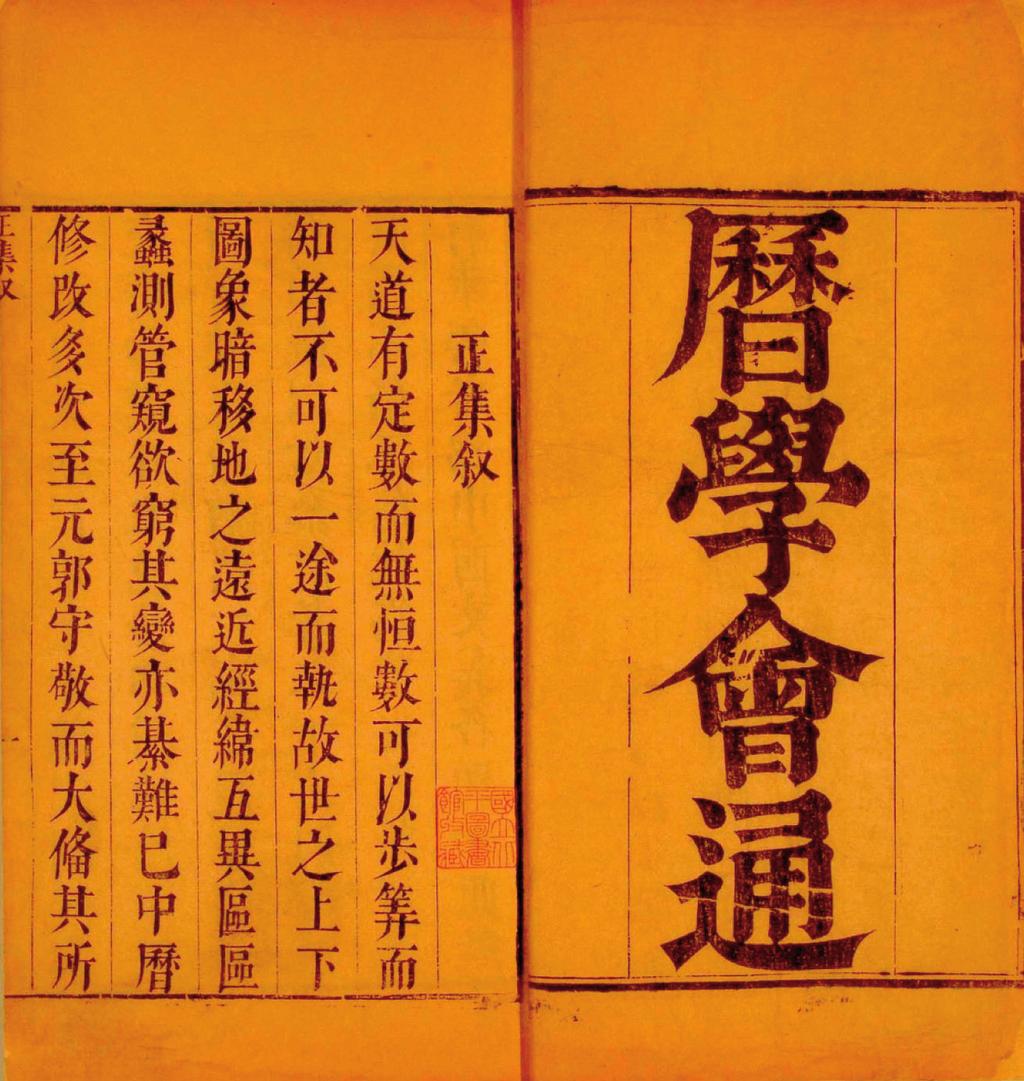 曆學會通
正集叙
天道有定數而無恒數可以步筭而
知者不可以一途而執故世之上下
圖象暗移地之遠近經緯互異區區
蠡測管窺欲窮其變亦綦難已中曆
修改多次至元郭守敬而大偹其所
正集叙
一
國立北
平圖書
館收藏